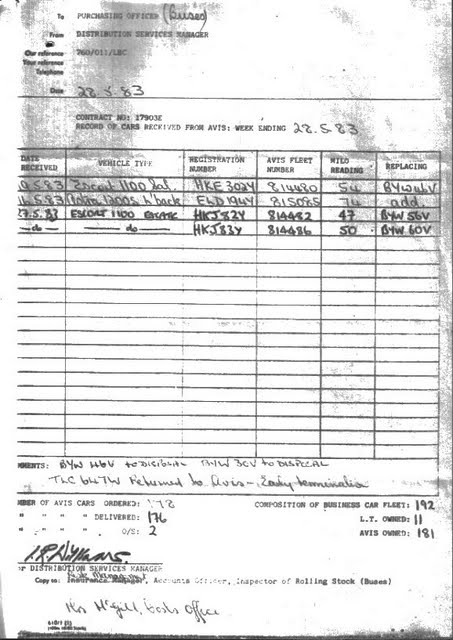 To PURCHASING OFFICER (Buses)
From DISTRIBUTION SERVICES MANAGER
Our reference 760/011/LBC
Your reference
Telephone
Date 28.5.83
CONTRACT NO: 17903E
RECORD OF CARS RECEIVED FROM AVIS: WEEK ENDING 28.5.83
DATE RECEIVED VEHICLE TYPE REGISTRATION NUMBER AVIS FLEET NUMBER MILO READING REPLACING
.5.83 Escort 1100 Sal. HKE 302Y 814480 54 BYW 46V
.5.83 1200S h'back ELD 194Y 815085 74 add
27.5.83 ESCORT 1100 ESTATE HKJ 82Y 814482 47 BYW 56V
- do - - do - HKJ 83Y 814486 50 BYW 60V
MMENTS: BYW 46V to BYW 36V to DISPOSAL
TLC 647W Returned to Avis - Early termination
MBER OF AVIS CARS ORDERED: 178 COMPOSITION OF BUSINESS CAR FLEET: 192
" " " DELIVERED: 176 L.T. OWNED: 11
" " " O/S: 2 AVIS OWNED: 181
DISTRIBUTION SERVICES MANAGER
Copy to: Insurance Manager, Accounts Officer, Inspector of Rolling Stock (Buses)
Risk Management
Mrs McGill, Costs Office